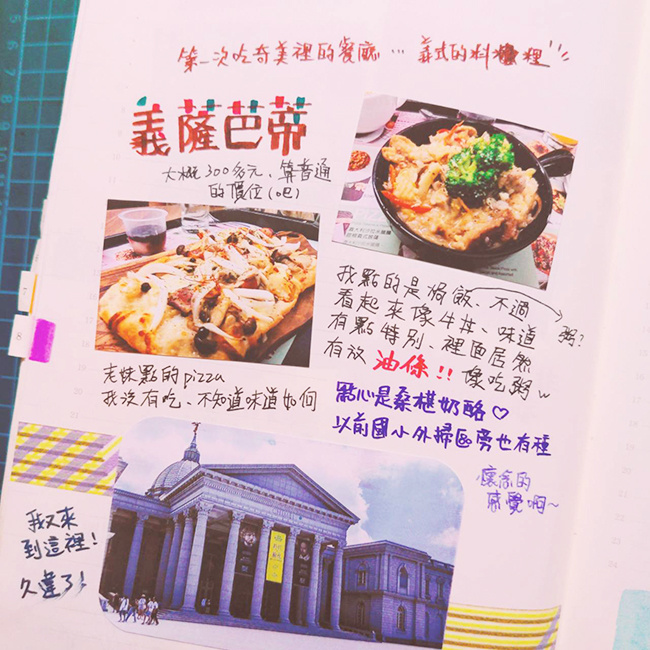 第一次吃奇美裡的餐廳… 義式的料裡
義薩芭蒂
大概300多元、算普通
的價位(吧)
我點的是焗飯、不過
看起來像牛丼、味道
有點特別、裡面居然
有放 油條!! 像吃粥
粥?
老妹點的pizza
我沒有吃、不知道味道如何
點心是桑椹奶酪♡
以前國小外掃區旁也有種
懷念的
感覺啊~
我又來
到這裡!
久違了!